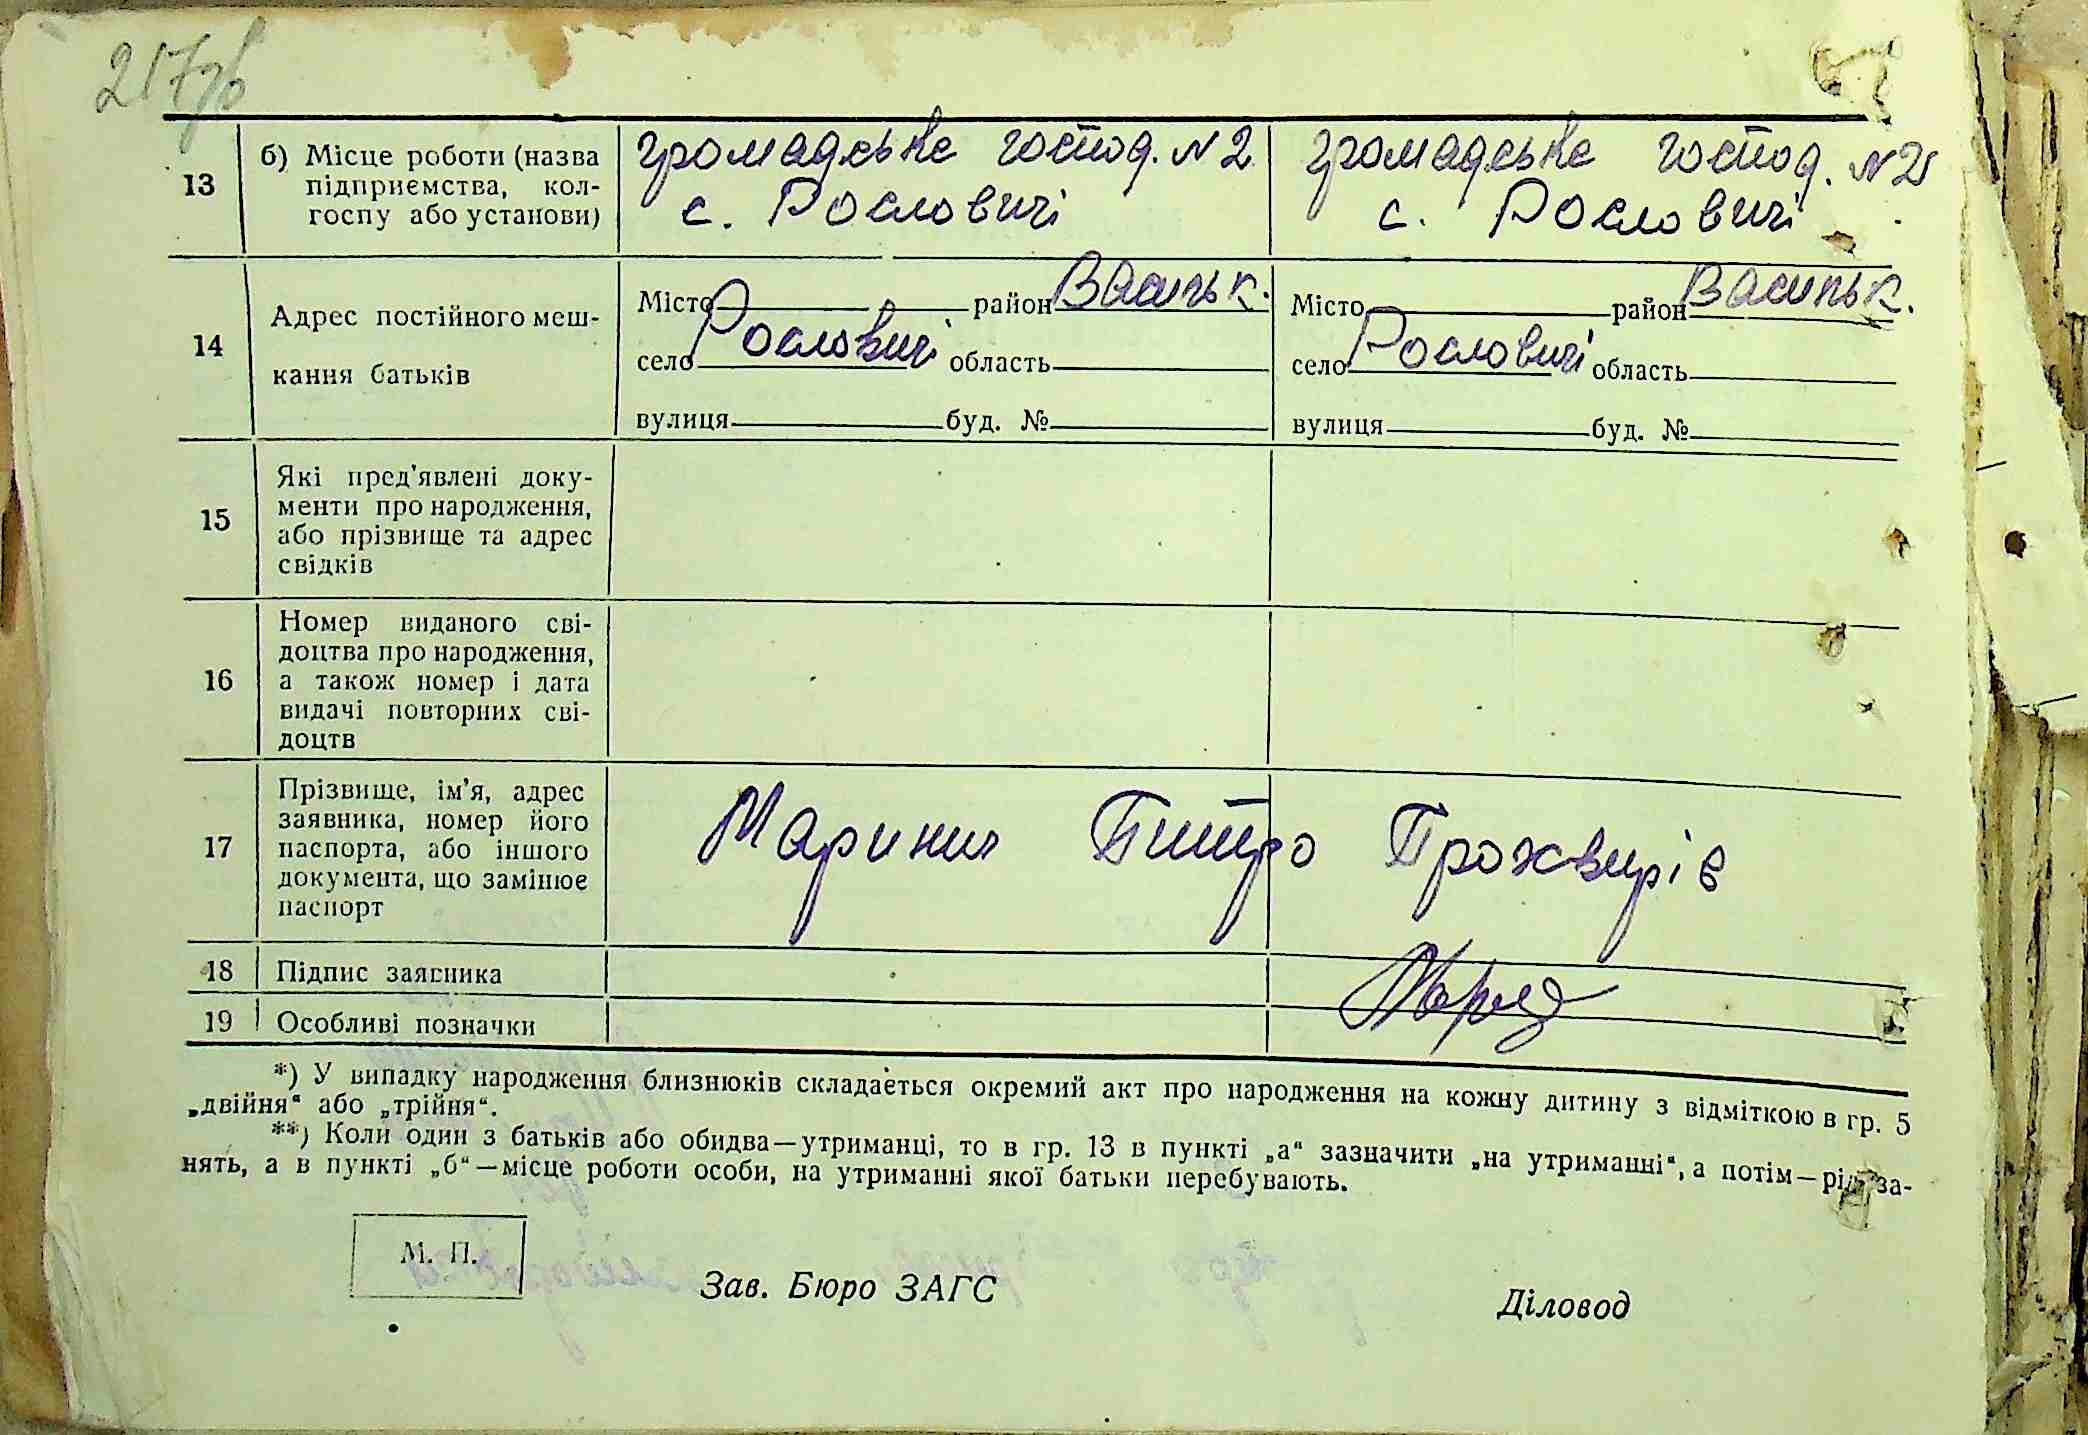 217зв
13 б) Місце роботи (назва підприємства, колгоспу або установи)
громадське господ. N 2 с. Рословичі
громадське господ. N 2 с. Рословичі
14 Адрес постійного мешкання батьків
Місто район Васильк.
село Рословичі область
вулиця буд. №
Місто район Васильк.
село Рословичі область
вулиця буд. №
15 Які пред'явлені доку-
менти про народження,
або прізвище та адрес
свідків
16 Номер виданого сві-
доцтва про народження,
а також номер і дата
видачі повторних сві-
доцтв
17 Прізвище, ім'я, адрес
заявника, номер його
паспорта, або іншого
документа, що замінює
паспорт
Маринич Питро Прохвирів
18 Підпис заявника
19 Особливі позначки
*) У випадку народження близнюків складається окремий акт про народження на кожну дитину з відміткою в гр. 5
„двійня“ або „трійня“.
**) Коли один з батьків або обидва—утриманці, то в гр. 13 в пункті „а“ зазначити „на утриманні“, а потім—рід за-
нять, а в пункті „б“—місце роботи особи, на утриманні якої батьки перебувають.
М. П.
Зав. Бюро ЗАГС
Діловод